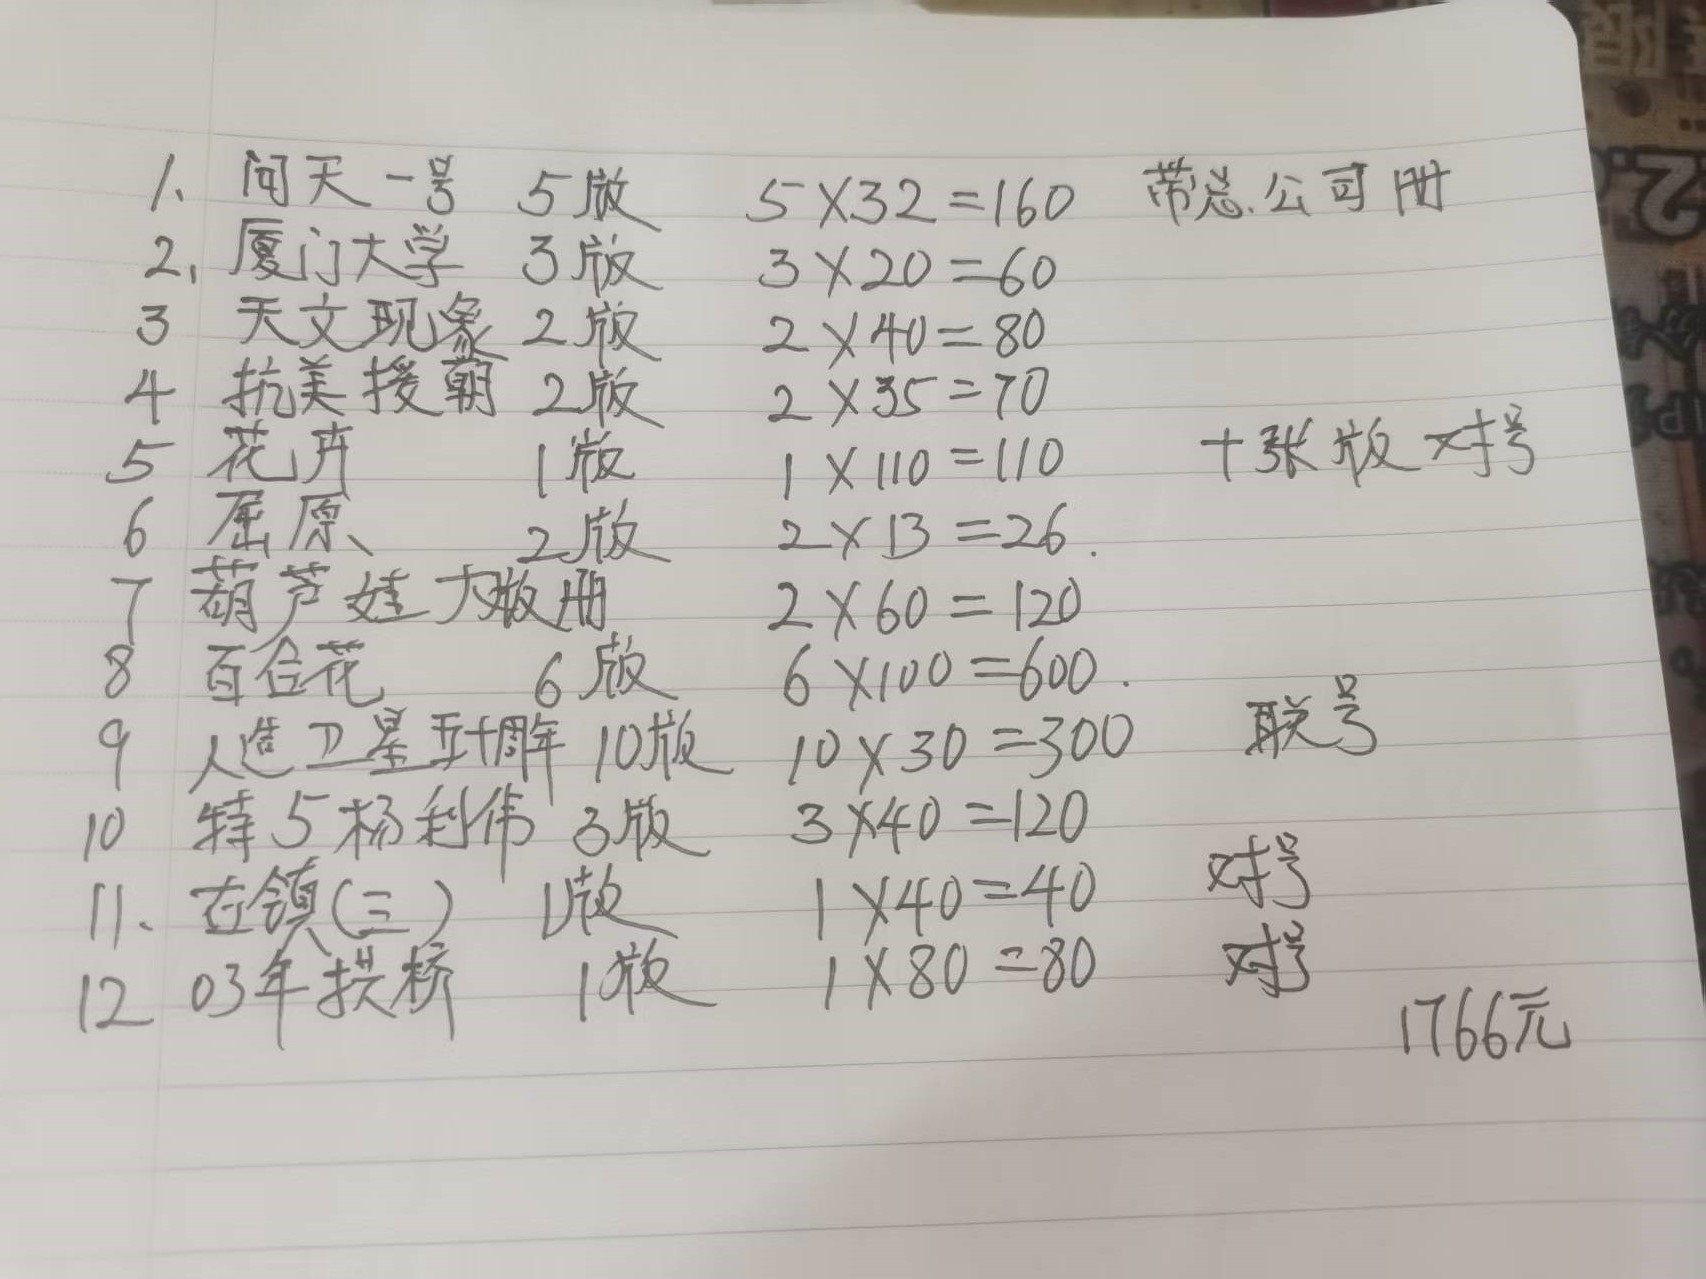 1、 问天一号 5版 5×32=160 带总公司册
2、 厦门大学 3版 3×20=60
3 天文现象 2版 2×40=80
4 抗美援朝 2版 2×35=70
5 花卉 1版 1×110=110 十张版对号
6 屈原、 2版 2×13=26.
7 葫芦娃大版册 2×60=120
8 百合花 6版 6×100=600.
9 人造卫星五十周年 10版 10×30=300 联号
10 特5杨利伟 3版 3×40=120
11. 古镇(三) 1版 1×40=40 对号
12 03年拱桥 1版 1×80=80 对号
1766元